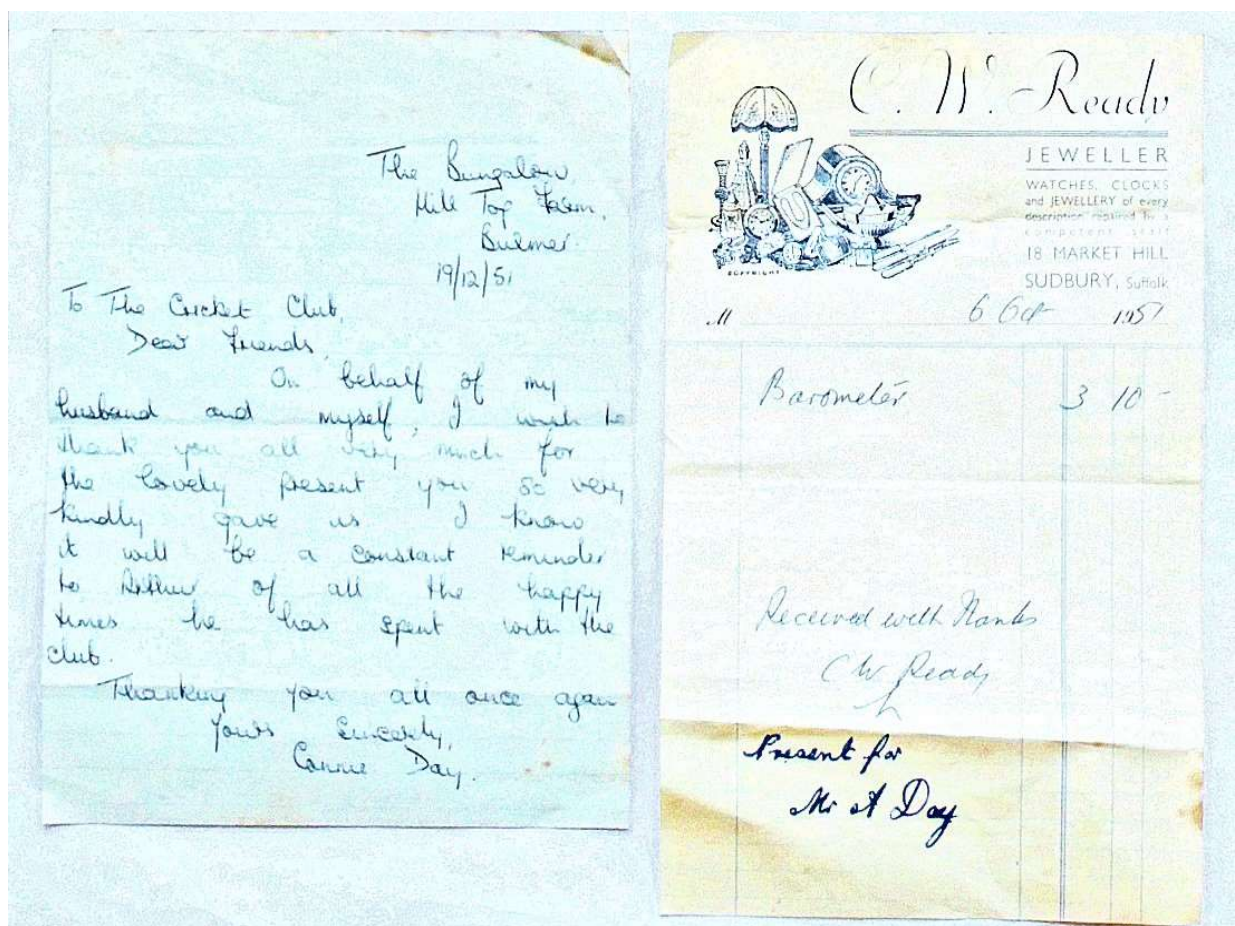 The Bungalow,
Hill Top Farm,
Bulmer.
19/12/51
To The Cricket Club,
Dear Friends,
On behalf of my
husband and myself, I wish to
thank you all very much for
the lovely present you so very
kindly gave us I know
it will be a constant reminder
to Arthur of all the happy
times he has spent with the
club.
Thanking you all once again
Yours Sincerely,
Connie Day.
C. W. Ready
JEWELLER
WATCHES, CLOCKS
and JEWELLERY of every
description repaired by a
competent staff
18 MARKET HILL
SUDBURY, Suffolk
COPYRIGHT
M 6 Oct 1951
Barometer 3 10 -
Received with Thanks
C W Ready
Present for
Mr A Day